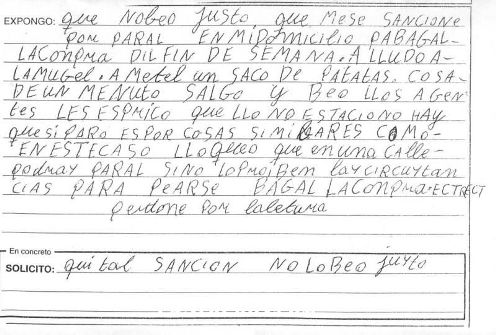 EXPONGO: que NOBEO JUSTO que MESE SANCIONE
POR PARAL EN MI DOMICILIO PABAGAL-
LA CONPRA DIL FIN DE SEMANA. A LLUDO A-
LA MUGEL. A METEL UN SACO DE PATATAS. COSA-
DE UN MENUTO SALGO Y BEO LLOS AGEN-
tes LES ESPRICO que LLO NO ESTACIONO HAY
que SI PARO ES POR COSAS SIMILARES COMO-
EN ESTE CASO LLO queO que en una CALLE-
PODRAY PARAL SI NO LO PROJIBEN LAY CIRCUYTAN
CIAS PARA PEARSE BAGAL LA CONPRA. ECTRECT
Perdone Por la letura
En concreto
SOLICITO: quital SANCION NO LO BEO juyto